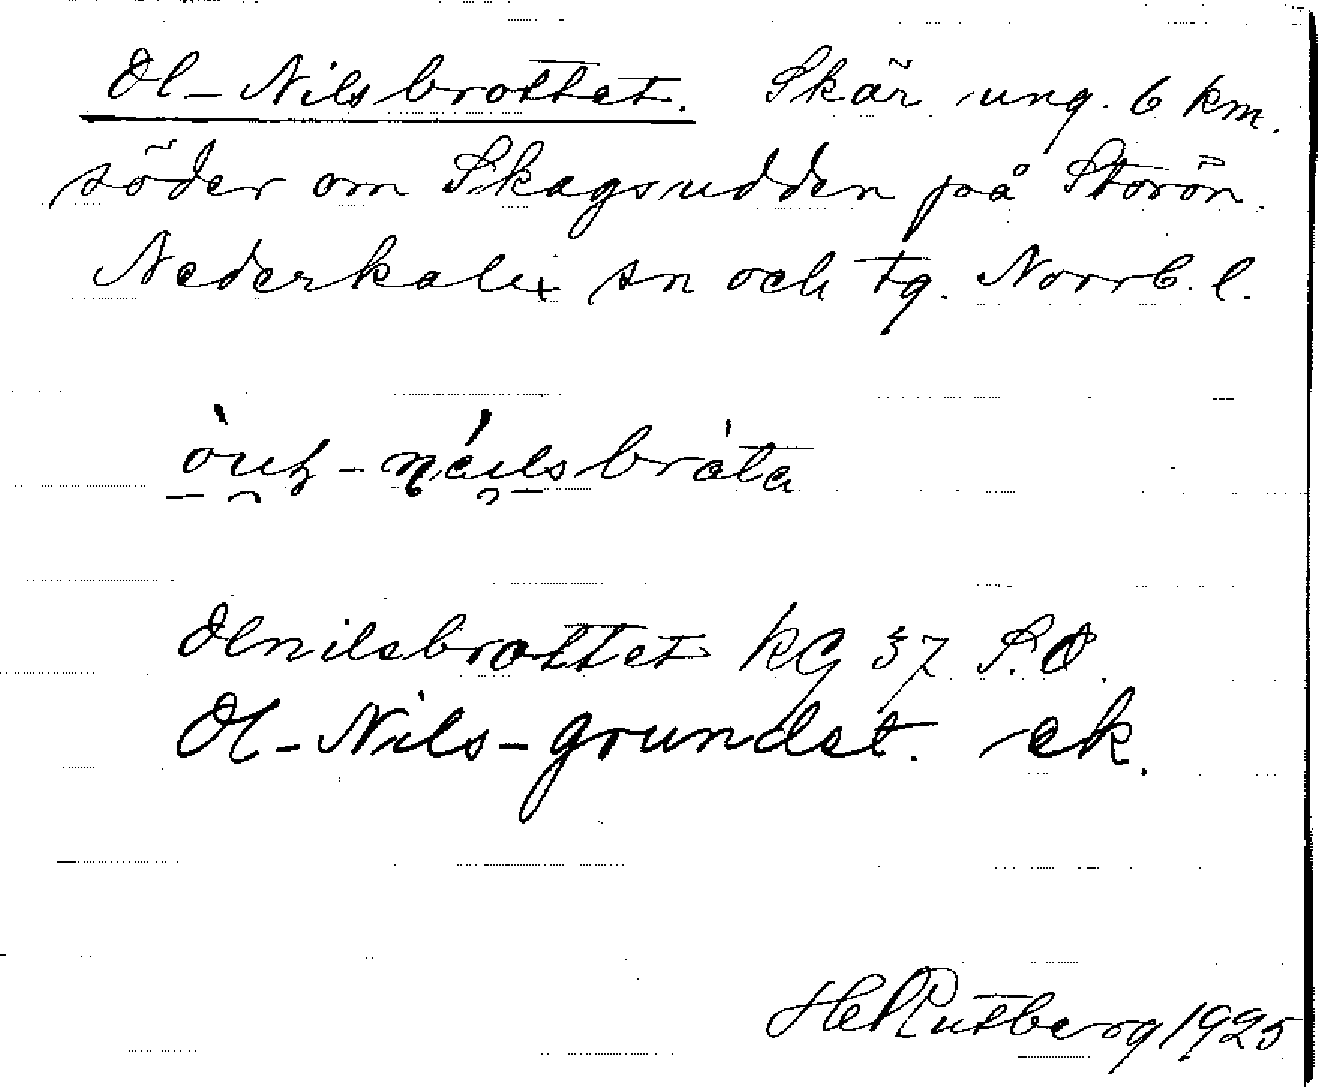 Ol-Nilsbrottet. Skär ung. 6 km.
söder om Skagsudden på Storön.
Nederkalix sn och tg. Norrb. l.
Olnilsbrottet KG 37 S.O.
Ol-Nils-grundet. ek.
H Rutberg 1925